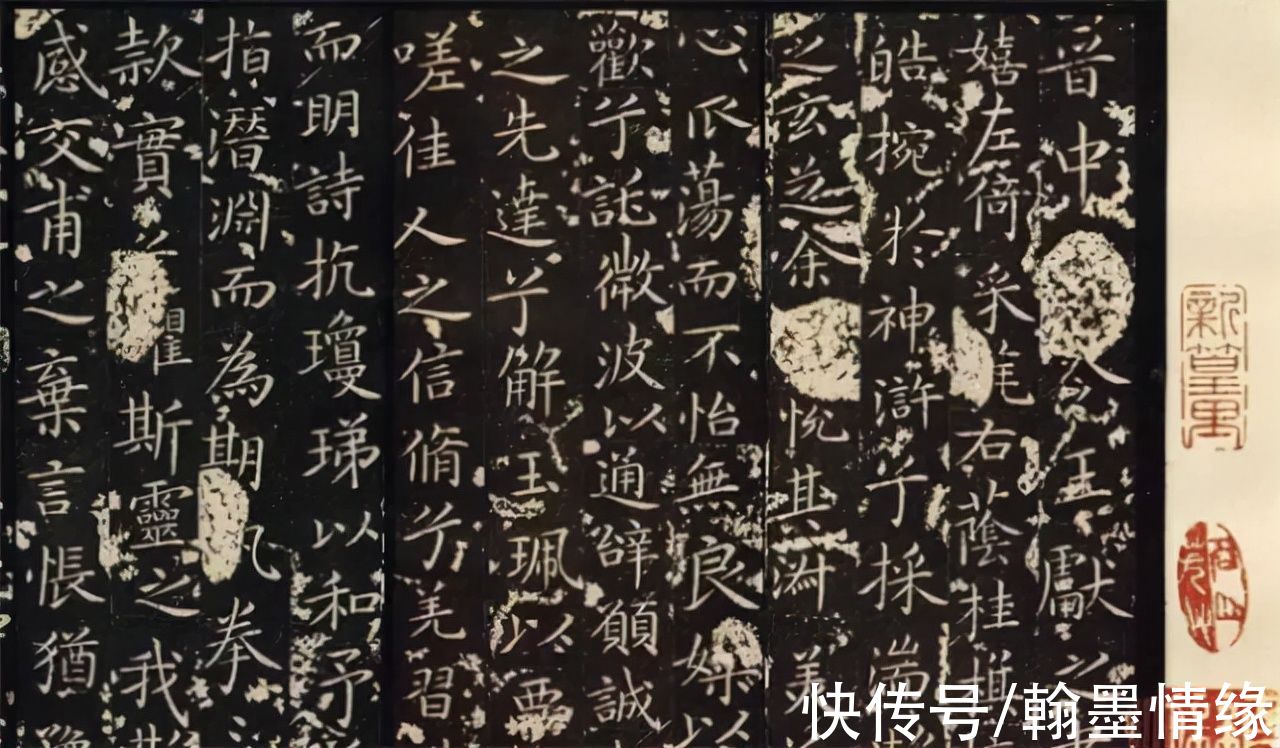 晋中王獻之
嬉左倚采旄右蔭桂旗
皓捥於神滸兮採湍
之玄芝余悅其淑美
心蕩而不怡無良媒以
歡兮託微波以通辭願誠
之先達兮解玉珮以要
嗟佳人之信脩兮羌習
而明詩抗瓊珶以和予
指潛淵而為期拳
款實懼斯靈之我欺
感交甫之棄言悵猶豫
快传号/翰墨情缘